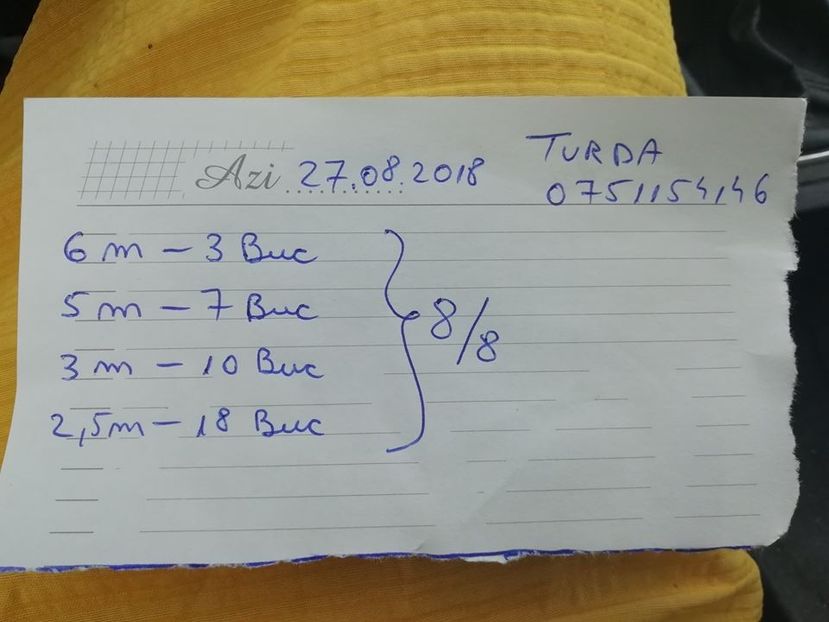 Azi 27.08.2018
TURDA
0751154146
6 m – 3 Buc
5 m – 7 Buc
3 m – 10 Buc
2,5m – 18 Buc
8/8